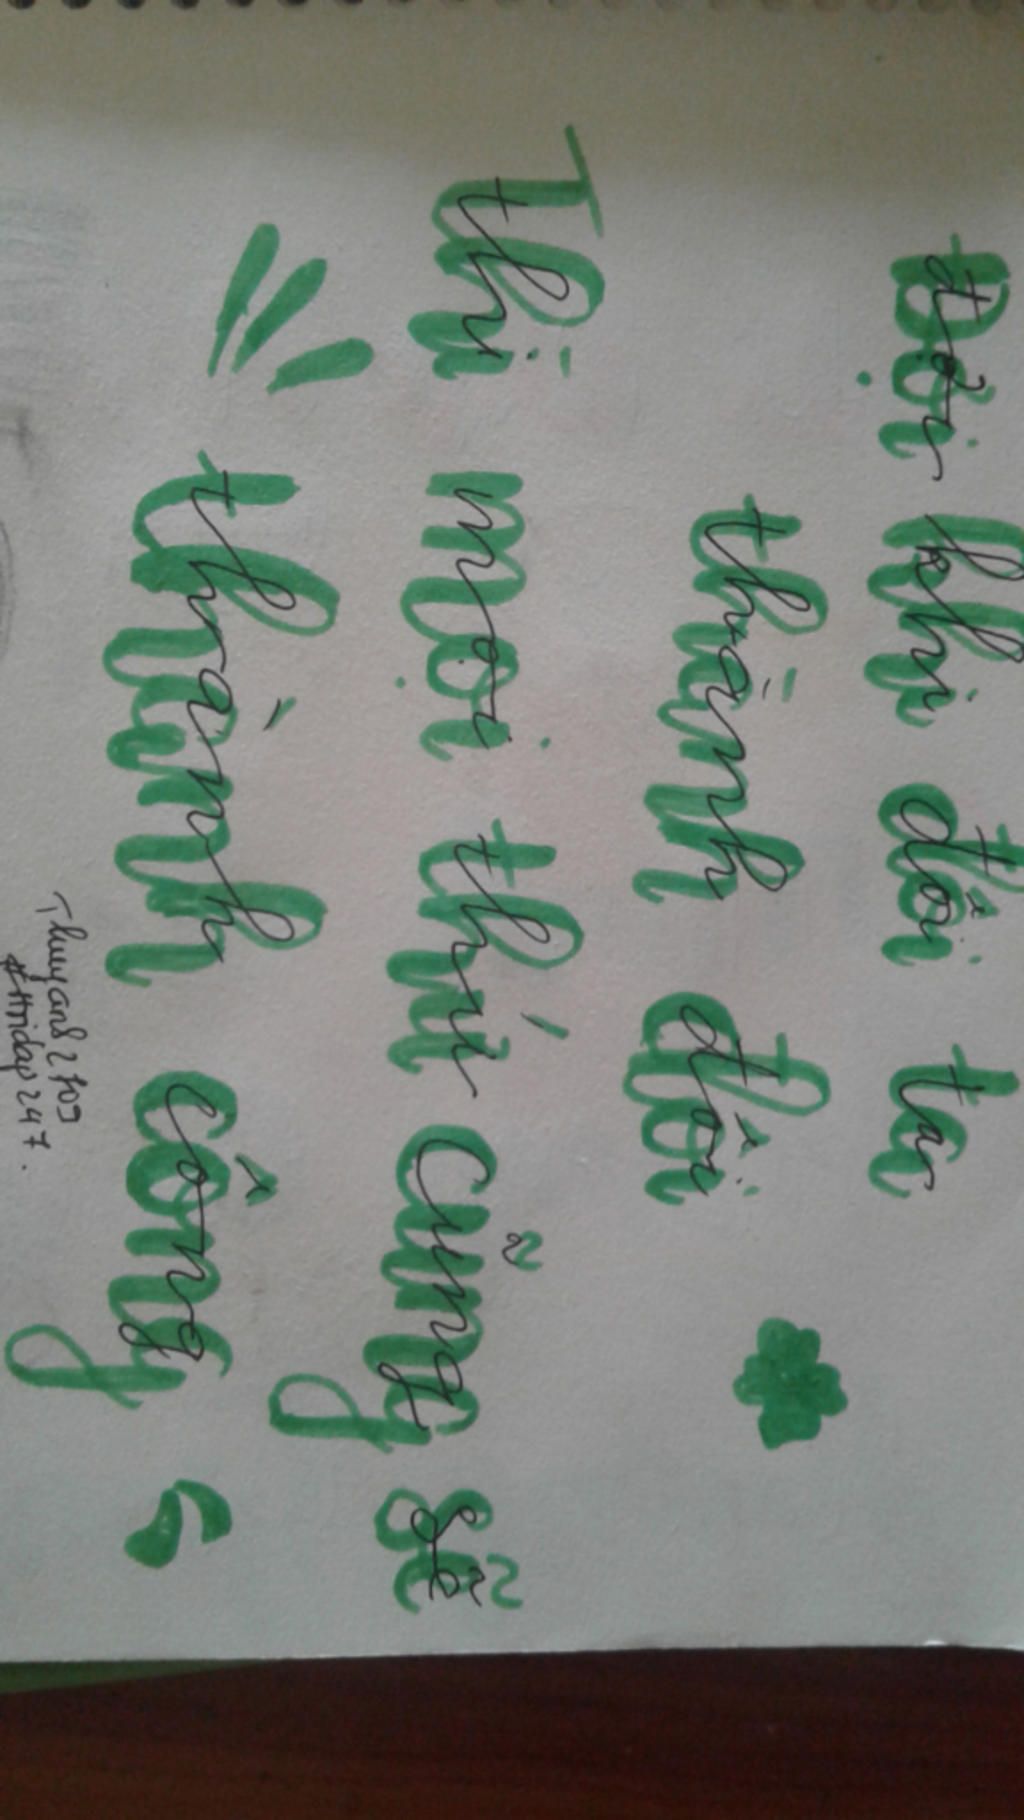 Đợi khi đôi ta
thành đôi
Thì mọi thứ cũng sẽ
thành công